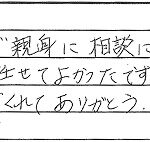 親身に相談に
任せてよかったです
くれてありがとう.